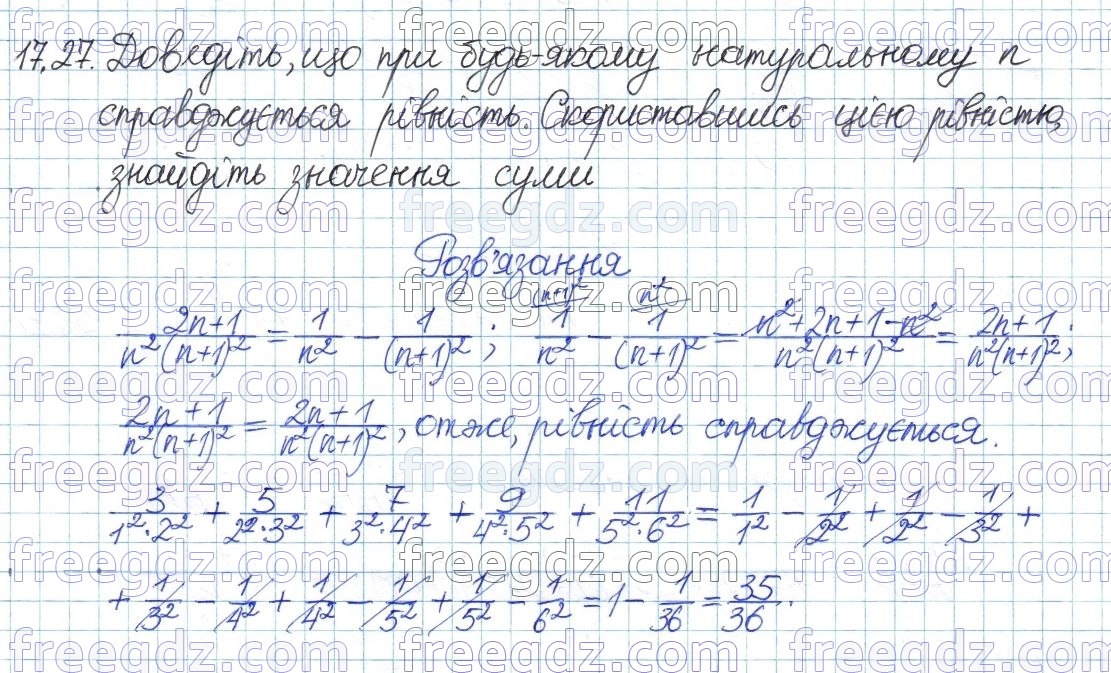 17.27. Доведіть, що при будь-якому натуральному n
справджується рівність. Скориставшись цією рівністю,
знайдіть значення суми
Розв'язання
\frac{2n+1}{n^2(n+1)^2} = \frac{1}{n^2} - \frac{1}{(n+1)^2}; \frac{1}{n^2}^{(n+1)^2} - \frac{1}{(n+1)^2}^{n^2} = \frac{n^2+2n+1-n^2}{n^2(n+1)^2} = \frac{2n+1}{n^2(n+1)^2};
\frac{2n+1}{n^2(n+1)^2} = \frac{2n+1}{n^2(n+1)^2}, отже, рівність справджується.
\frac{3}{1^2·2^2} + \frac{5}{2^2·3^2} + \frac{7}{3^2·4^2} + \frac{9}{4^2·5^2} + \frac{11}{5^2·6^2} = \frac{1}{1^2} - \frac{1}{2^2} + \frac{1}{2^2} - \frac{1}{3^2} +
+ \frac{1}{3^2} - \frac{1}{4^2} + \frac{1}{4^2} - \frac{1}{5^2} + \frac{1}{5^2} - \frac{1}{6^2} = 1 - \frac{1}{36} = \frac{35}{36}.
freegdz.com